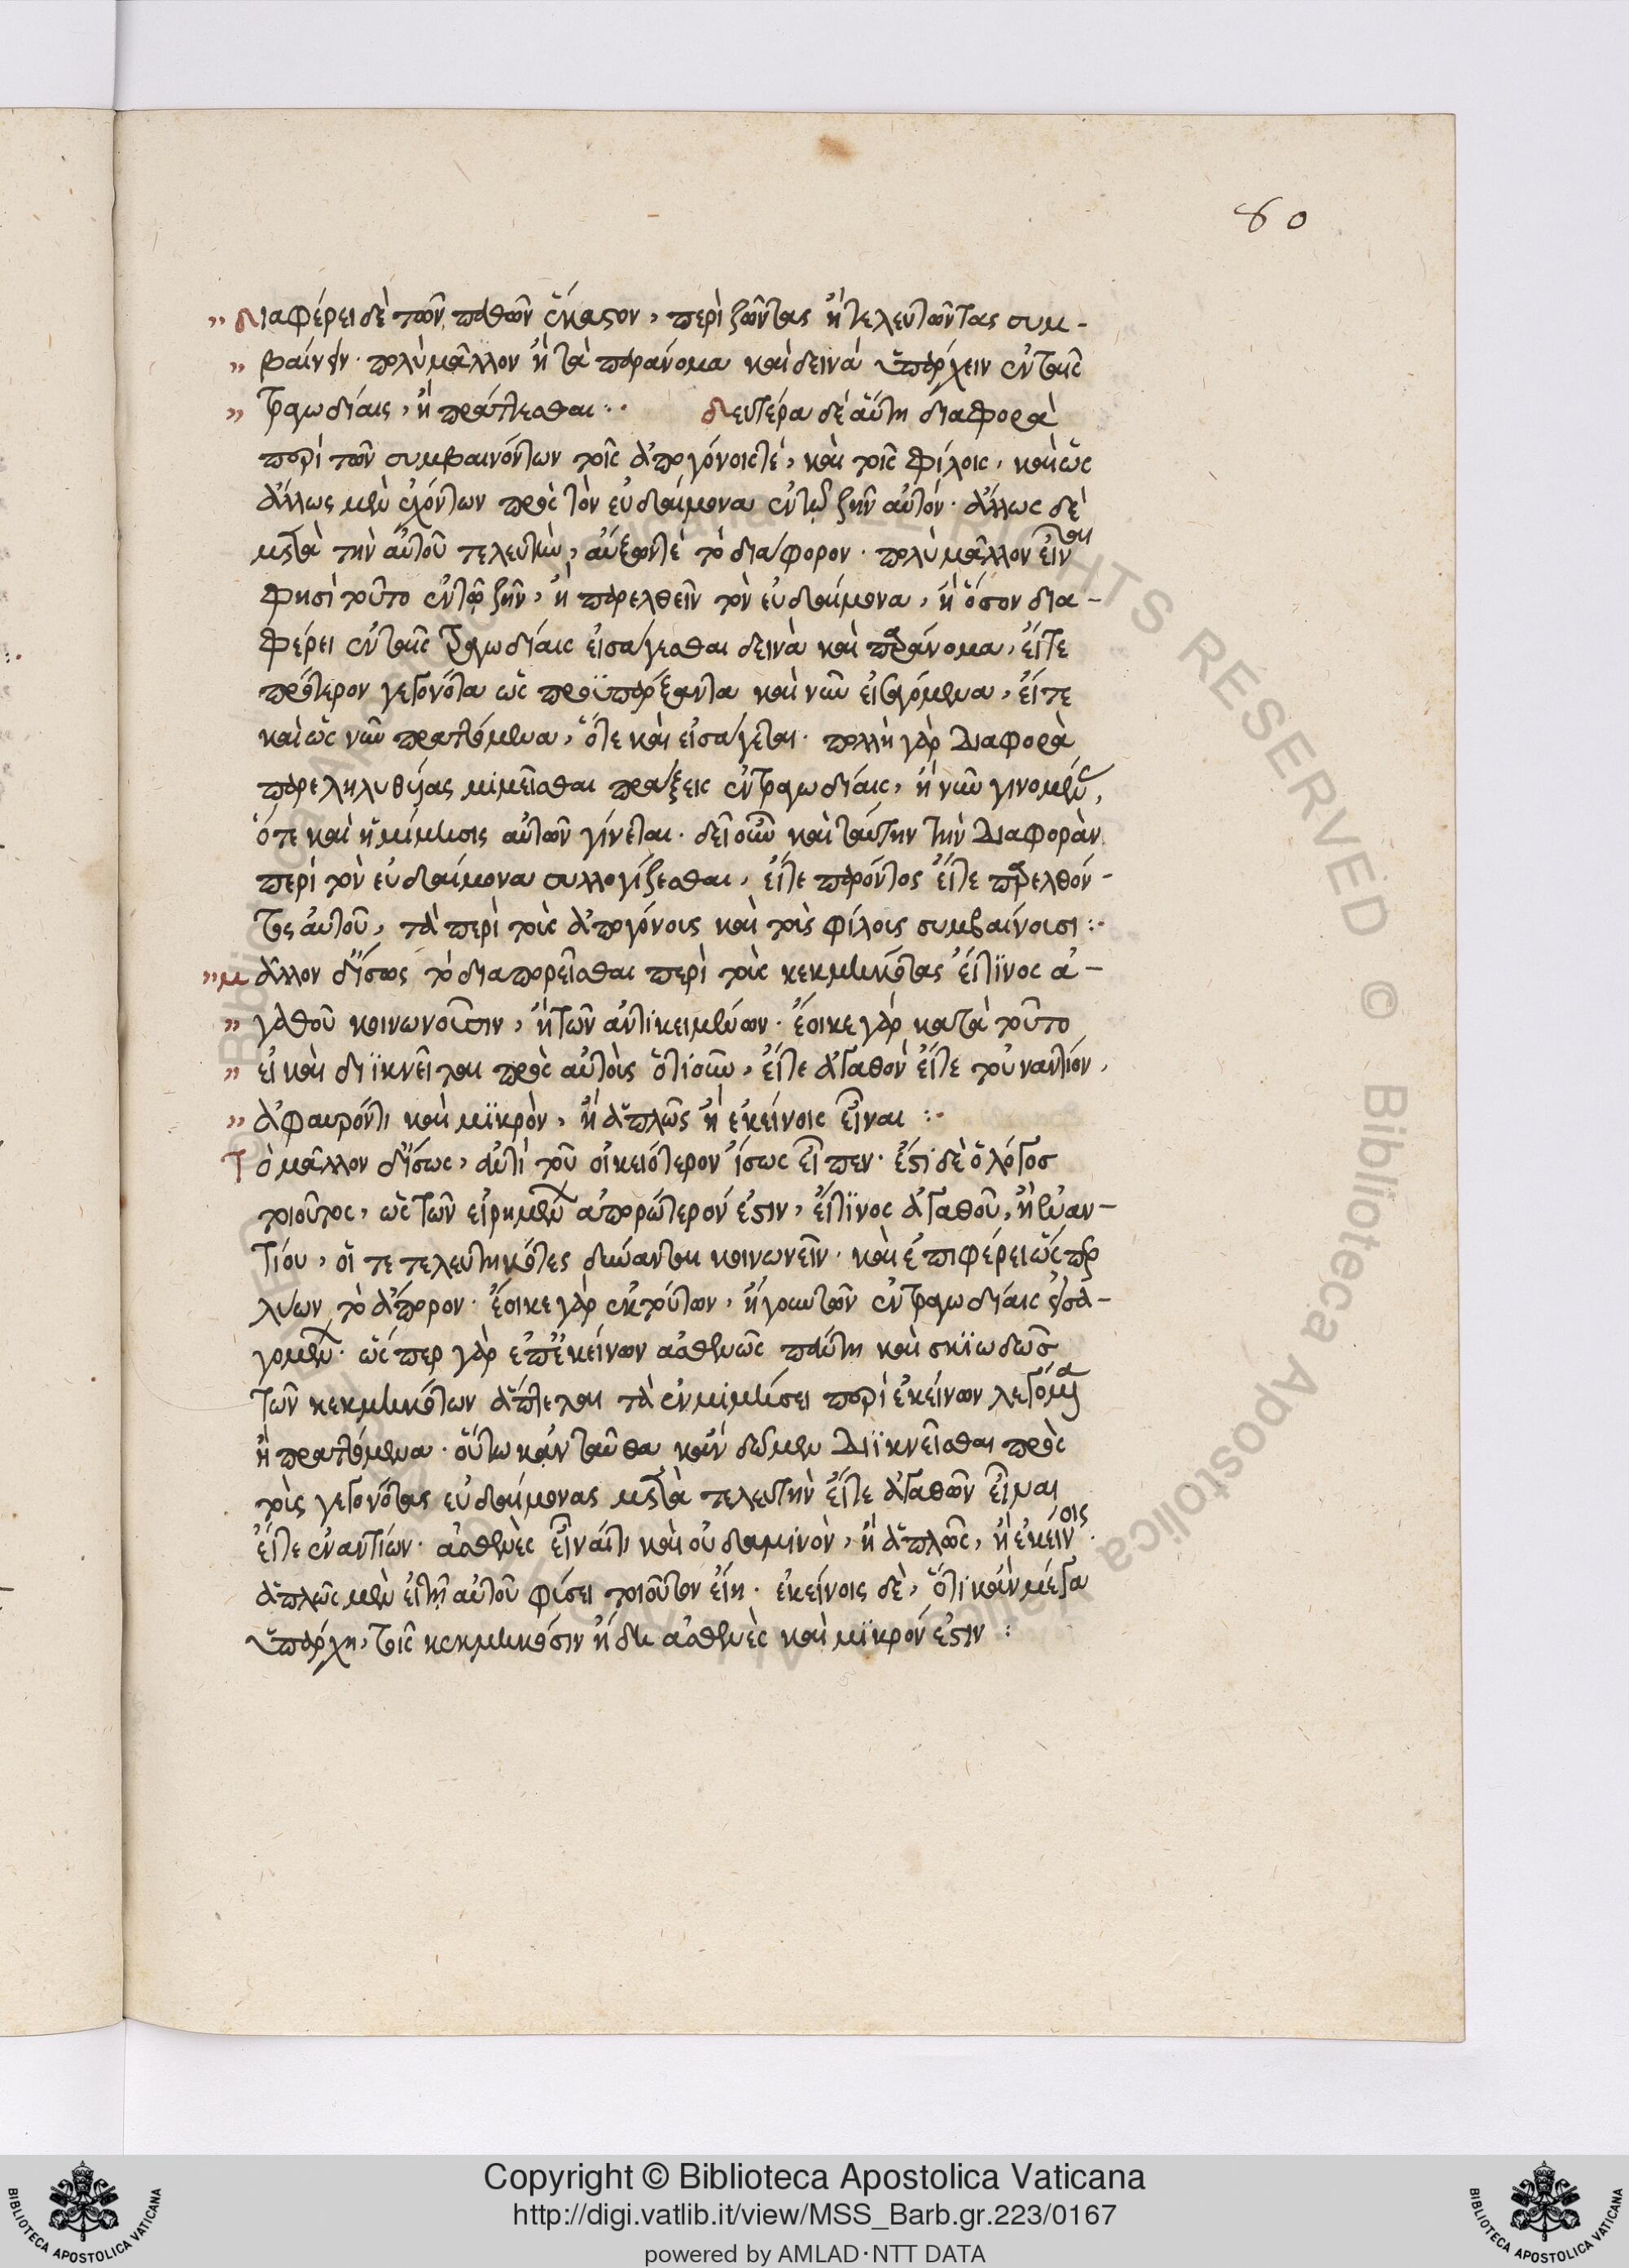 80
" διαφέρει δὲ τῶν παθῶν ἕκαστον, περὶ ζῶντας ἢ τελευτῶντας συμ-
" βαίνειν. πολὺ μᾶλλον ἢ τὰ παράνομα καὶ δεινὰ ὑπάρχειν ἐν ταῖς
" τραγωδίαις, ἢ πράττεσθαι : δευτέρα δὲ αὕτη διαφορὰ
περὶ τῶν συμβαινόντων τοῖς ἀπογόνοις τὲ, καὶ τοῖς φίλοις, καὶ ὡς
ἄλλως μὲν ἐχόντων πρὸς τὸν εὐδαίμονα ἐν τῷ ζῆν αὐτόν. ἄλλως δὲ
μετὰ τὴν αὐτοῦ τελευτὴν, αὔξων τὲ τὸ διάφορον. πολὺ μᾶλλον εἶναι
φησὶ τοῦτο ἐν τῷ ζῆν, ἢ παρελθεῖν τὸν εὐδαίμονα, ἢ ὅσον δια-
φέρει ἐν ταῖς τραγωδίαις εἰσάγεσθαι δεινὰ καὶ παράνομα, εἴτε
πρότερον γεγονότα ὡς προϋπάρξαντα καὶ νῦν εἰσαγόμενα, εἴτε
καὶ ὡς νῦν πραττόμενα, ὅτε καὶ εἰσάγεται. πολλὴ γὰρ διαφορὰ
παρεληλυθυίας μιμεῖσθαι πράξεις ἐν τραγωδίαις, ἢ νῦν γινομένας,
ὅτε καὶ ἡ μίμησις αὐτῶν γίνεται. δεῖ οὖν καὶ ταύτην τὴν διαφορὰν
περὶ τὸν εὐδαίμονα συλλογίζεσθαι, εἴτε παρόντος εἴτε παρελθόν-
τος αὐτοῦ, τὰ περὶ τοὺς ἀπογόνους καὶ τοὺς φίλους συμβαίνουσι :
" μᾶλλον δ' ἴσως τὸ διαπορεῖσθαι περὶ τοὺς κεκμηκότας εἴ τινος ἀ-
" γαθοῦ κοινωνοῦσιν, ἢ τῶν ἀντικειμένων. ἔοικε γὰρ κατὰ τοῦτο
" εἰ καὶ διϊκνεῖται πρὸς αὐτοὺς ὁτιοῦν, εἴτε ἀγαθὸν εἴτε τοὐναντίον,
" ἀφαυρόν τι καὶ μικρὸν, ἢ ἁπλῶς ἢ ἐκείνοις εἶναι :
Τὸ μᾶλλον δ' ἴσως, ἀντὶ τοῦ οἰκειότερον ἴσως εἶπεν. ἔστι δὲ ὁ λόγος
τοιοῦτος, ὡς τῶν εἰρημένων ἀπορώτερόν ἐστιν, εἴ τινος ἀγαθοῦ, ἢ ἐναν-
τίου, οἵ τε τελευτηκότες δύνανται κοινωνεῖν. καὶ ἐπιφέρει ὥσπερ
λύων τὸ ἄπορον. ἔοικε γὰρ ἐκ τούτων, ἤγουν τῶν ἐν τραγωδίαις εἰσα-
γομένων. ὥσπερ γὰρ ἐπ' ἐκείνων ἀσθενῶς πάνυ καὶ σκιωδῶς
τῶν κεκμηκότων ἅπτεται τὰ ἐν μιμήσει περὶ ἐκείνων λεγόμενα
ἢ πραττόμενα. οὕτω κἀνταῦθα κἂν δῶμεν διϊκνεῖσθαι πρὸς
τοὺς γεγονότας εὐδαίμονας μετὰ τελευτὴν εἴτε ἀγαθῶν εἶναι
εἴτε ἐναντίων. ἀσθενὲς εἶναί τι καὶ οὐδαμινὸν, ἢ ἁπλῶς, ἢ ἐκείνοις.
ἁπλῶς μὲν εἰ τῇ αὐτοῦ φύσει τοιοῦτον εἴη. ἐκείνοις δὲ, ὅτι κἂν μέγα
ὑπάρχη, τοῖς κεκμηκόσιν ἤδη ἀσθενὲς καὶ μικρόν ἐστιν :
Copyright © Biblioteca Apostolica Vaticana
http://digi.vatlib.it/view/MSS_Barb.gr.223/0167
powered by AMLAD·NTT DATA